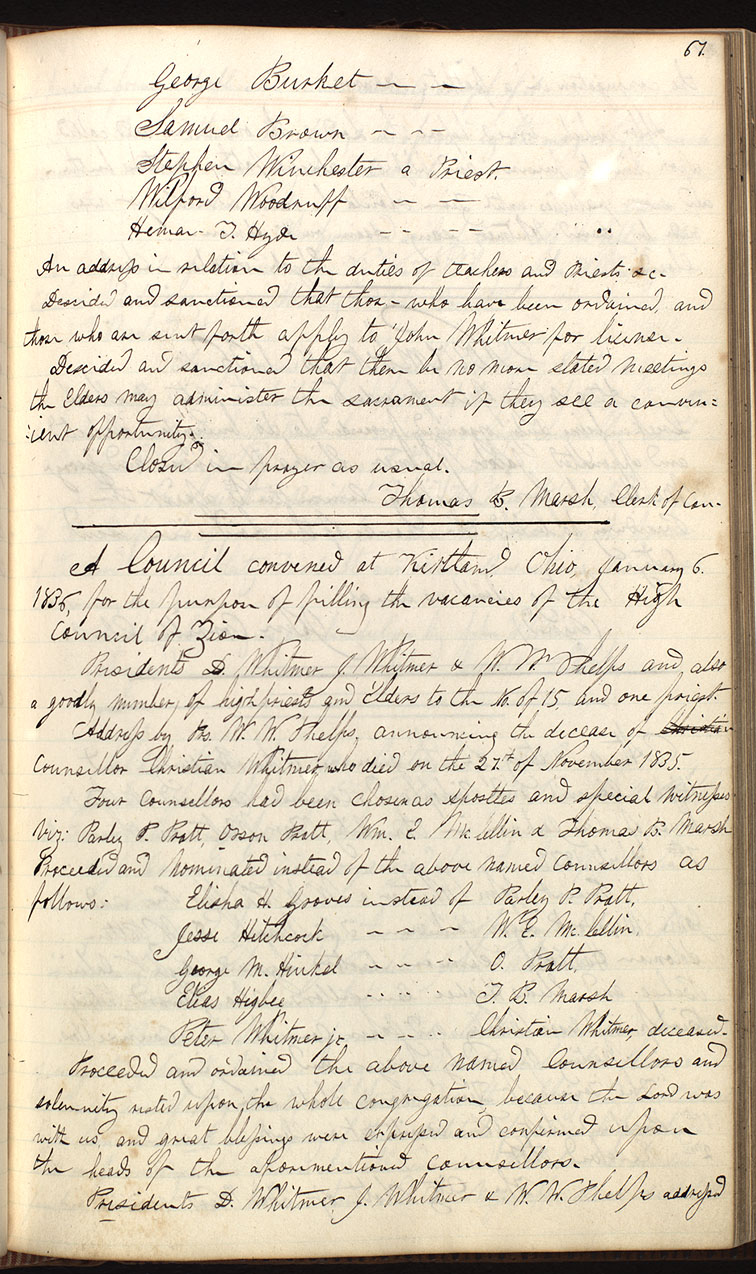 67.
George Burket — —
Samuel Brown — — —
Stephen Winchester a Priest.
Wilford Woodruff — —
Heman T. Hyde — — — —
An address in relation to the duties of teachers and Priests &c—
Desided and sanctioned that those— who have been ordained, and
those who are sent forth apply to John Whitmer for license.
Descided and sanctioned that there be no more stated meetings
the Elders may administer the sacrament if they see a conven=
=ient opportunity.
Closed in prayer as usual.
Thomas B. Marsh, Clerk of Con—
A Council convened at Kirtland, Ohio, January 6.
1836, for the purpose of filling the vacancies of the High
Council of Zion.
Presidents D. Whitmer J. Whitmer & W. W. Phelps and also
a goodly number of high priests and Elders to the No. of 15, and one priest.
Address by Prs. W. W. Phelps, announcing the decease of Christian
Counsellor Christian Whitmer, who died on the 27th of November 1835.
Four Counsellors had been chosen as Apostles and special witnesses
viz: Parley P. Pratt, Orson Pratt, Wm. E. Mc.lellin & Thomas B. Marsh
Proceeded and Nominated instead of the above named Counsellors as
follows: Elisha H. Groves instead of Parley P. Pratt,
Jesse Hitchcock — — — W. E. Mc.lellin,
George M. Hinkel — — — O. Pratt,
Elias Higbee . . . . . T. B. Marsh
Peter Whitmer jr. — — . . Christian Whitmer, deceased—
Proceeded and ordained the above named Counsellors and
solemnity rested upon the whole congregation, because the Lord was
with us, and great blessings were expressed and confirmed upon
the heads of the aforementioned counsellors.
Presidents D. Whitmer J. Whitmer & W. W. Phelps addressed